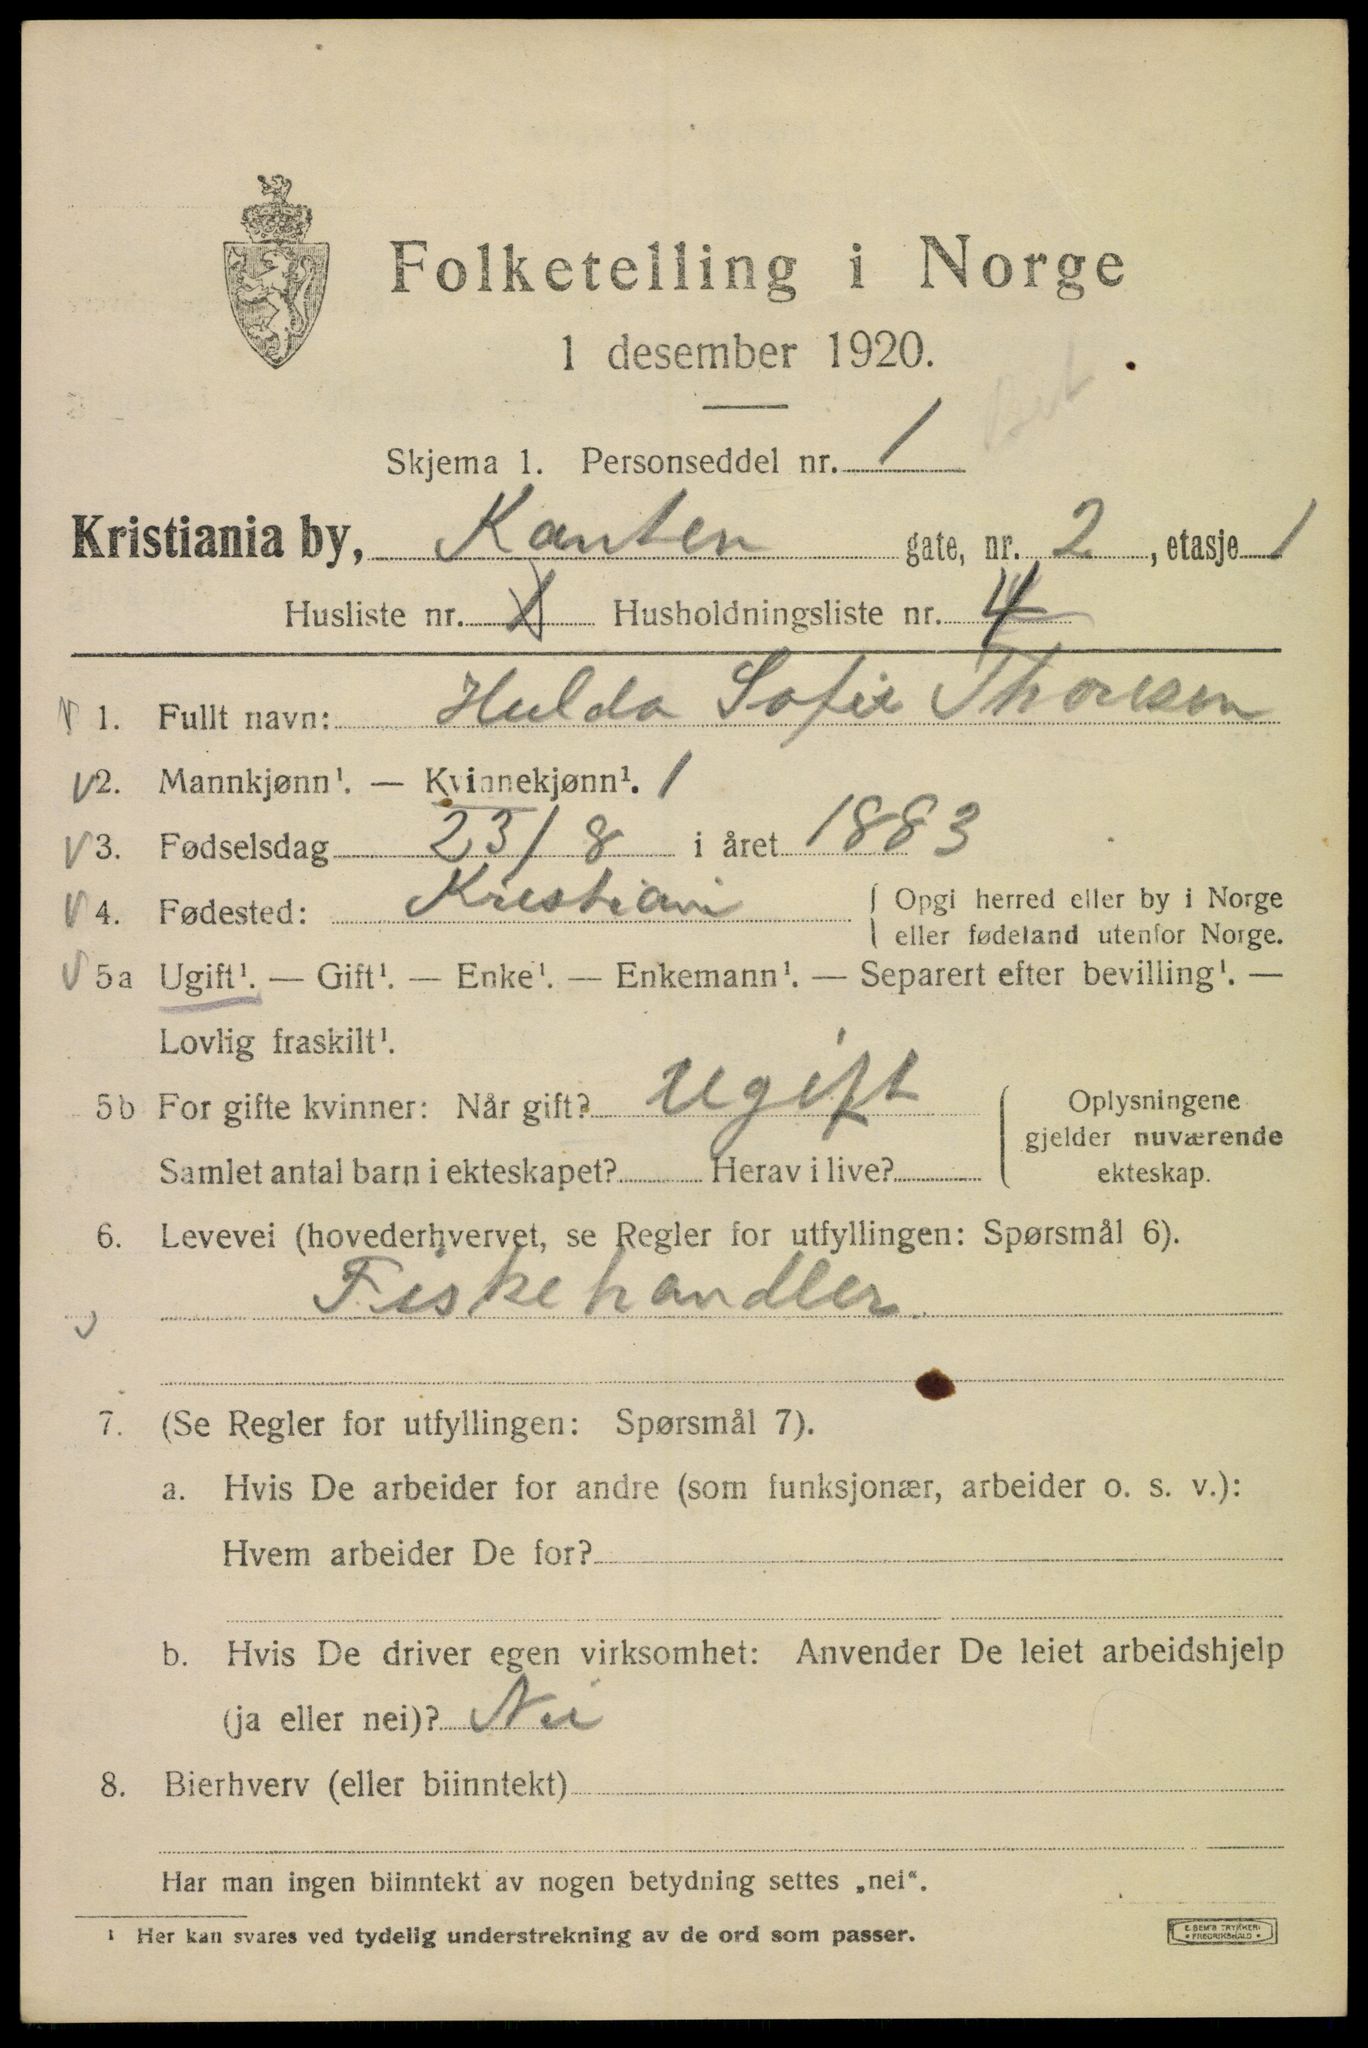 Folketelling i Norge
1 desember 1920.
Skjema 1. Personseddel nr. 1
Kristiania by, Kanten gate, nr. 2, etasje 1
Husliste nr. 1 Husholdningsliste nr. 4
1. Fullt navn: Hulda Sofie Thoresen
2. Mannkjønn¹. — Kvinnekjønn¹. 1
3. Fødselsdag 23/8 i året 1883
4. Fødested: Kristiani { Opgi herred eller by i Norge
eller fødeland utenfor Norge.
5a Ugift¹. — Gift¹. — Enke¹. — Enkemann¹. — Separert efter bevilling¹. —
Lovlig fraskilt¹.
5b For gifte kvinner: Når gift? Ugift
Samlet antal barn i ekteskapet? Herav i live?
Oplysningene
gjelder nuværende
ekteskap.
6. Levevei (hovederhvervet, se Regler for utfyllingen: Spørsmål 6).
Fiskehandler.
7. (Se Regler for utfyllingen: Spørsmål 7).
a. Hvis De arbeider for andre (som funksjonær, arbeider o. s. v.):
Hvem arbeider De for?
b. Hvis De driver egen virksomhet: Anvender De leiet arbeidshjelp
(ja eller nei)? Nei
8. Bierhverv (eller biinntekt)
Har man ingen biinntekt av nogen betydning settes „nei“.
¹ Her kan svares ved tydelig understrekning av de ord som passer.
E. SEM'S TRYKKERI
FREDRIKSHALD